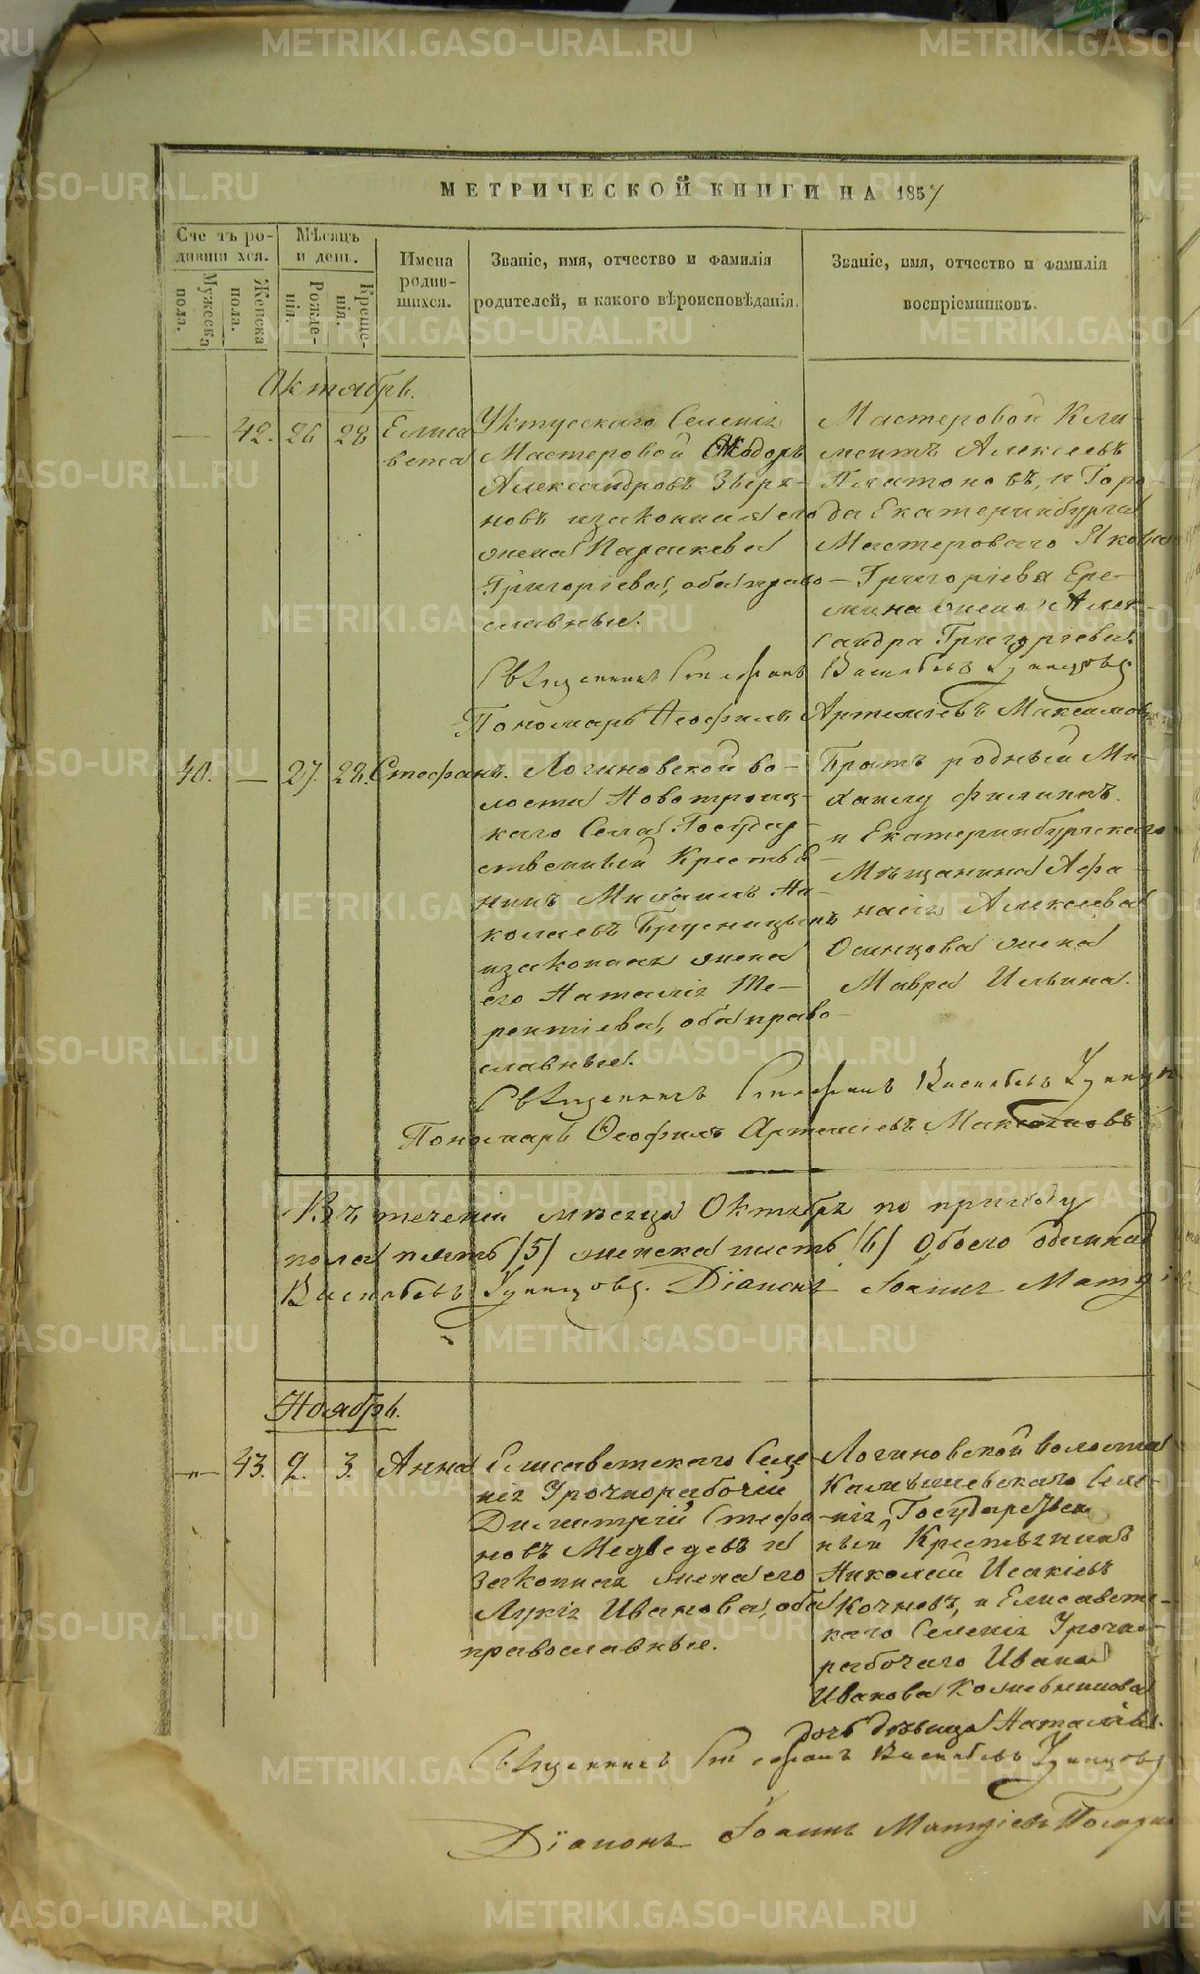 МЕТРИЧЕСКОЙ КНИГИ НА 1857
Счетъ родившихся.
Мѣсяцъ и день.
Имена родившихся.
Званіе, имя, отчество и фамилія родителей, и какого вѣроисповѣданія.
Званіе, имя, отчество и фамилія воспріемниковъ.
Мужеска пола.
Женска пола.
Рожденія.
Крещенія.
Октябрь.
— 42. 26 28 Елиса
вета
Уктусскаго Селенія
Мастеровой Ѳеодоръ
Александровъ Звѣре-
новъ изаконная его
жена Параскева
Григоріева, оба право-
славные.
Мастеровой Кли-
ментъ Алексѣевъ
Платоновъ, и Горо-
да Екатеринбурга
Мастероваго Якова
Григоріева Ере-
мина жена Алек-
сандра Григоріева.
Священникъ Стефанъ Васильевъ
Пономарь Ѳеофилъ Артемьевъ Максимовъ
40. — 27. 28. Стефанъ.
Логиновской во-
лости Новотроиц-
каго Села Государ-
ственный Крестья-
нинъ Михаилъ Ни-
колаевъ Брусницынъ
изаконная жена
его Наталія Те-
рентіева, оба право-
славные.
Братъ родный Ми-
хаилу Филипъ.
и Екатеринбургскаго
Мѣщанина Афа-
насія Алексѣева
Осинцова жена
Мавра Ильина.
Священникъ Стефанъ Васильевъ
Пономарь Ѳеофилъ Артемьевъ Максимовъ
Въ теченіи мѣсяца Октября по приходу
пола пять /5/ женска шесть /6/ Обоего одиннад
Васильевъ Діаконъ Іоаннъ
Ноябрь.
—„— 43. 2. 3. Анна
Елисаветскаго Селе-
нія Урочнорабочій
Димитрій Стефа-
новъ Медведевъ и
Законная жена его
Лукія Иванова, оба
православные.
Логиновской волости
Камышевскаго Селе-
нія Государствен
ный Крестьянинъ
Николай Исакіевъ
Кочневъ, и Елисавет-
скаго Селенія Урочно-
рабочаго Ивана
Иванова Кожевникова
дочь дѣвица Наталія.
Священникъ Стефанъ Васильевъ
Діаконъ Іоаннъ
METRIKI.GASO-URAL.RU